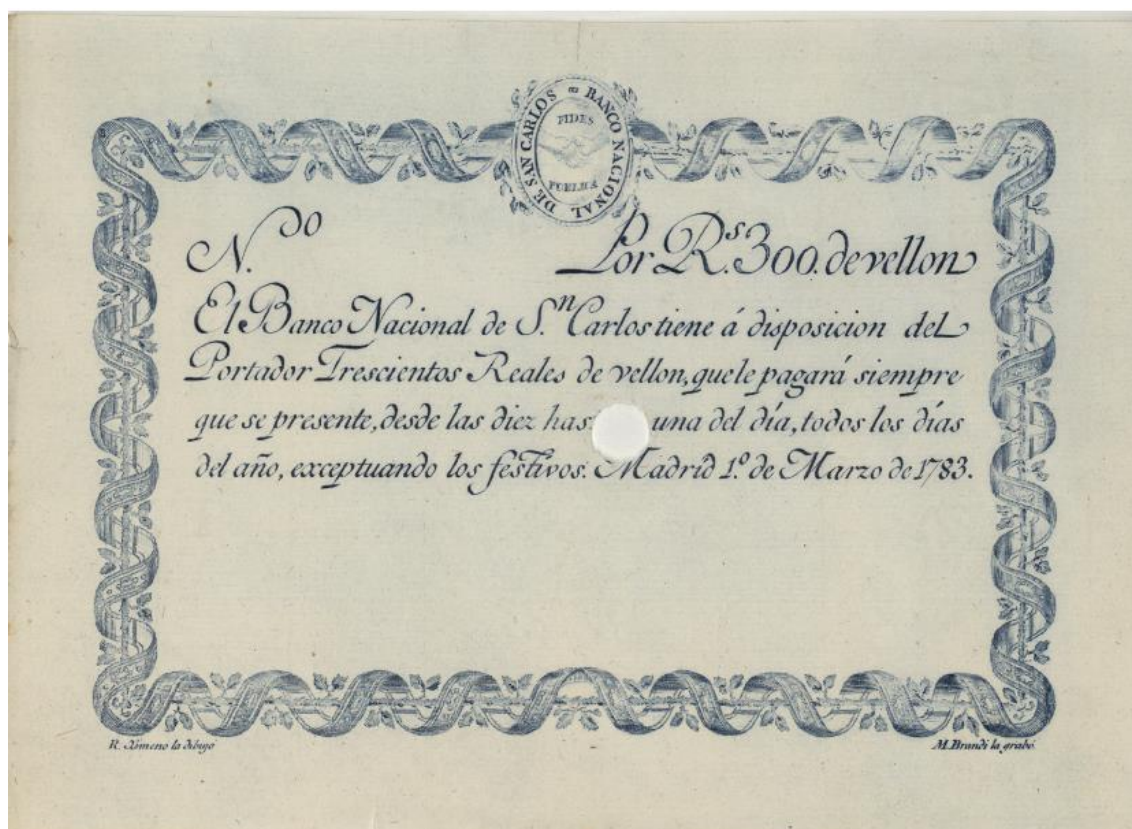 BANCO NACIONAL DE SAN CARLOS
FIDES
PUBLICA
N.do
Por R.s 300. de vellon
El Banco Nacional de S.n Carlos tiene á disposicion del
Portador Trescientos Reales de vellon, que le pagará siempre
que se presente, desde las diez has una del día, todos los días
del año, exceptuando los festivos. Madrid 1.º de Marzo de 1783.
R. Ximeno la dibujó
M. Brandi la grabó.